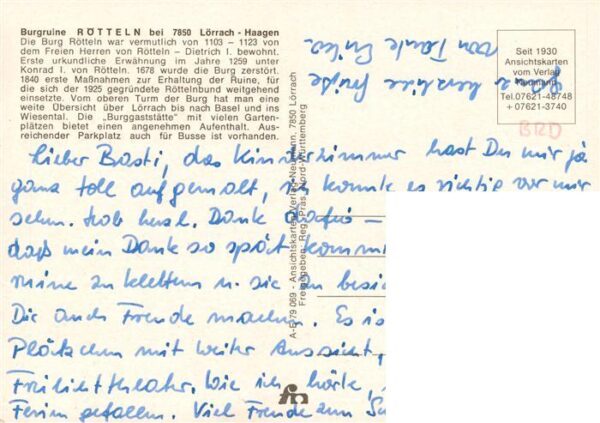 Burgruine RÖTTELN bei 7850 Lörrach - Haagen
Die Burg Rötteln war vermutlich von 1103 – 1123 von
dem Freien Herren von Rötteln – Dietrich I. bewohnt.
Erste urkundliche Erwähnung im Jahre 1259 unter
Konrad I. von Rötteln. 1678 wurde die Burg zerstört.
1840 erste Maßnahmen zur Erhaltung der Ruine, für
die sich der 1925 gegründete Röttelnbund weitgehend
einsetzte. Vom oberen Turm der Burg hat man eine
weite Übersicht über Lörrach bis nach Basel und ins
Wiesental. Die „Burggaststätte" mit vielen Garten-
plätzen bietet einen angenehmen Aufenthalt. Aus-
reichender Parkplatz auch für Busse ist vorhanden.
Seit 1930
Ansichtskarten
vom Verlag
Neumann
Tel.07621-48748
+ 07621-3740
BRD
herzliche Grüße
von Tante Erika
A-E 79 069 - Ansichtskarten-Verlag Neumann, 7850 Lörrach
Freigegeben: Reg. Präs. Nord-Württemberg
Lieber Basti, das Kinderzimmer hast Du mir ja
ganz toll aufgemalt, ich konnte es richtig vor mir
sehn. Hab herzl. Dank dafür –
daß mein Dank so spät kommt
ruine zu klettern u. sie zu besic
Dir auch Freude machen. Es is
Plätzchen mit weiter Aussicht,
Freilichttheater. Wie ich hörte,
Ferien gefallen. Viel Freude zum